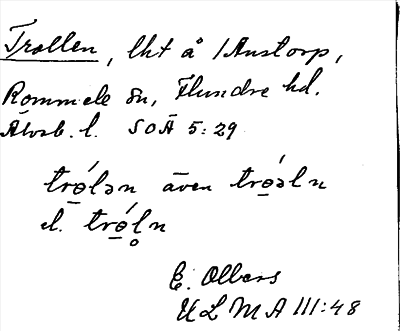 Trollen, lht å /Anstorp,
Rommele sn, Flundre hd.
Älvsb. l. SOÄ 5:29
trǿ̱lən även trǿ̱əln
el. trǿ̱l̥n
E. Olbers
ULMA III:48